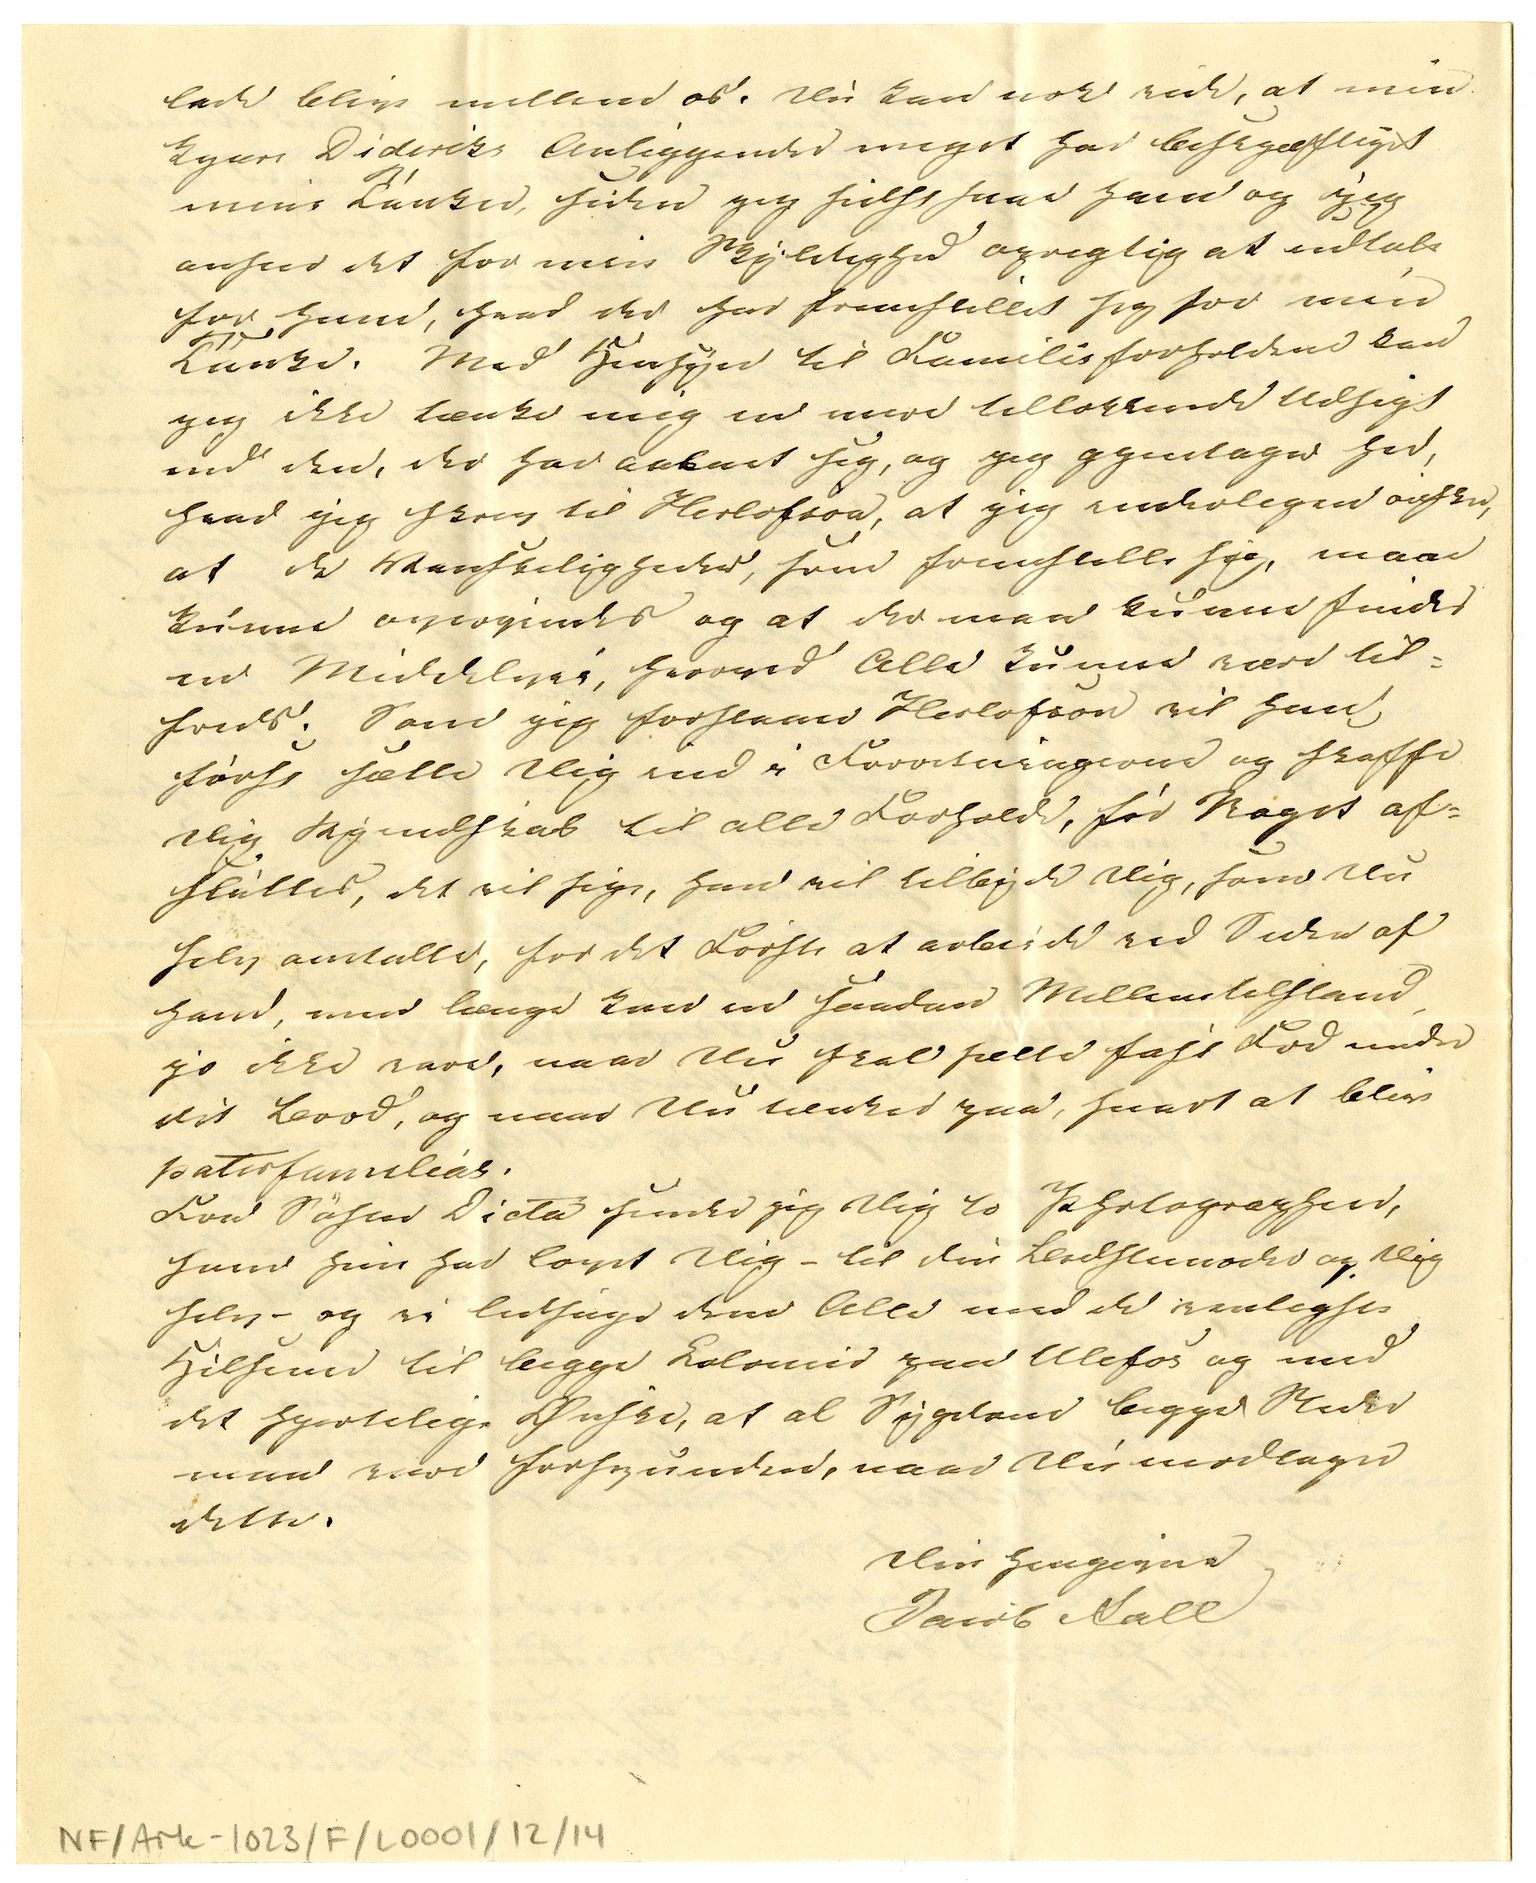 lade blive mellem os. Du kan nok vide, at min
kjære Dideriks Anliggender meget har beskjæftiget
mine Tanker, siden jeg sidst saae ham og jeg
anseer det for min Skyldighed oprigtig at udtale
for ham, hvad der har fremstillet sig for min
Tanke. Med Hensyn til Familieforholdene kan
jeg ikke tænke mig en mere tillokkende Udsigt
end den, der har aabnet sig, og jeg gjentager her,
hvad jeg skrev til Herlofson, at jeg inderligen ønsker,
at de Vanskeligheder, som fremstille sig, maae
kunne overvindes og at der maa kunne findes
en Middelvei, hvorved Alle kunne være til=
freds. Som jeg forstaaer Herlofson vil han
først sætte Dig ind i Forretningerne og skaffe
Dig Kjendskab til alle Forholde, før Noget af=
sluttes, det vil sige, han vil tilbyde Dig, som Du
selv antallte, for det Første at arbeide ved Siden af
ham, men længe kan en saadan Mellemtilstand
jo ikke vare, naar Du skal sætte fast Fod under
dit Bord, og naar Du tænker paa, snart at blive
paterfamilias.
Fra Søster Dicta sender jeg Dig to Photographier,
som hun har lovet Dig – til din Bedstemoder og Dig
selv – og vi ledsage dem Alle med de venligste
Hilsener til begge Kolonier paa Ulefos og med
det hjertelige Ønske, at al Sygdom begge Steder
maa være forsvunden, naar Du modtager
dette.
Din hengivne
Jacob Aall
NF/Ark-1023/F/L0001/12/14